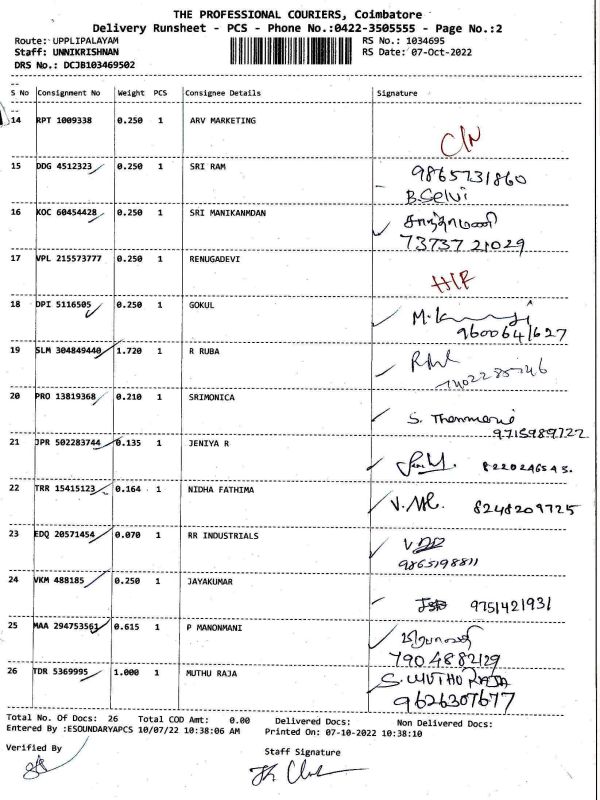 THE PROFESSIONAL COURIERS, Coimbatore
Delivery Runsheet - PCS - Phone No.:0422-3505555 - Page No.:2
Route: UPPLIPALAYAM RS No.: 1034695
Staff: UNNIKRISHNAN RS Date: 07-Oct-2022
DRS No.: DCJB103469502
S No Consignment No Weight PCS Consignee Details Signature
14 RPT 1009338 0.250 1 ARV MARKETING
C/N
15 DDG 4512323 0.250 1 SRI RAM
9865731860
B.Selvi
16 KOC 60454428 0.250 1 SRI MANIKANMDAN
சாந்தாமணி
73737 21029
17 VPL 215573777 0.250 1 RENUGADEVI
18 DPI 5116505 0.250 1 GOKUL
9600641627
19 SLM 304849440 1.720 1 R RUBA
20 PRO 13819368 0.210 1 SRIMONICA
9715989722
21 JPR 502283744 0.135 1 JENIYA R
8220246543.
22 TRR 15415123 0.164 1 NIDHA FATHIMA
8248209725
23 EDQ 20571454 0.070 1 RR INDUSTRIALS
9865198811
24 VKM 488185 0.250 1 JAYAKUMAR
9751421931
25 MAA 294753561 0.615 1 P MANONMANI
7904882129
26 TDR 5369995 1.000 1 MUTHU RAJA
S.MUTHU RAJA
9626307677
Total No. Of Docs: 26 Total COD Amt: 0.00 Delivered Docs: Non Delivered Docs:
Entered By :ESOUNDARYAPCS 10/07/22 10:38:06 AM Printed On: 07-10-2022 10:38:10
Verified By Staff Signature